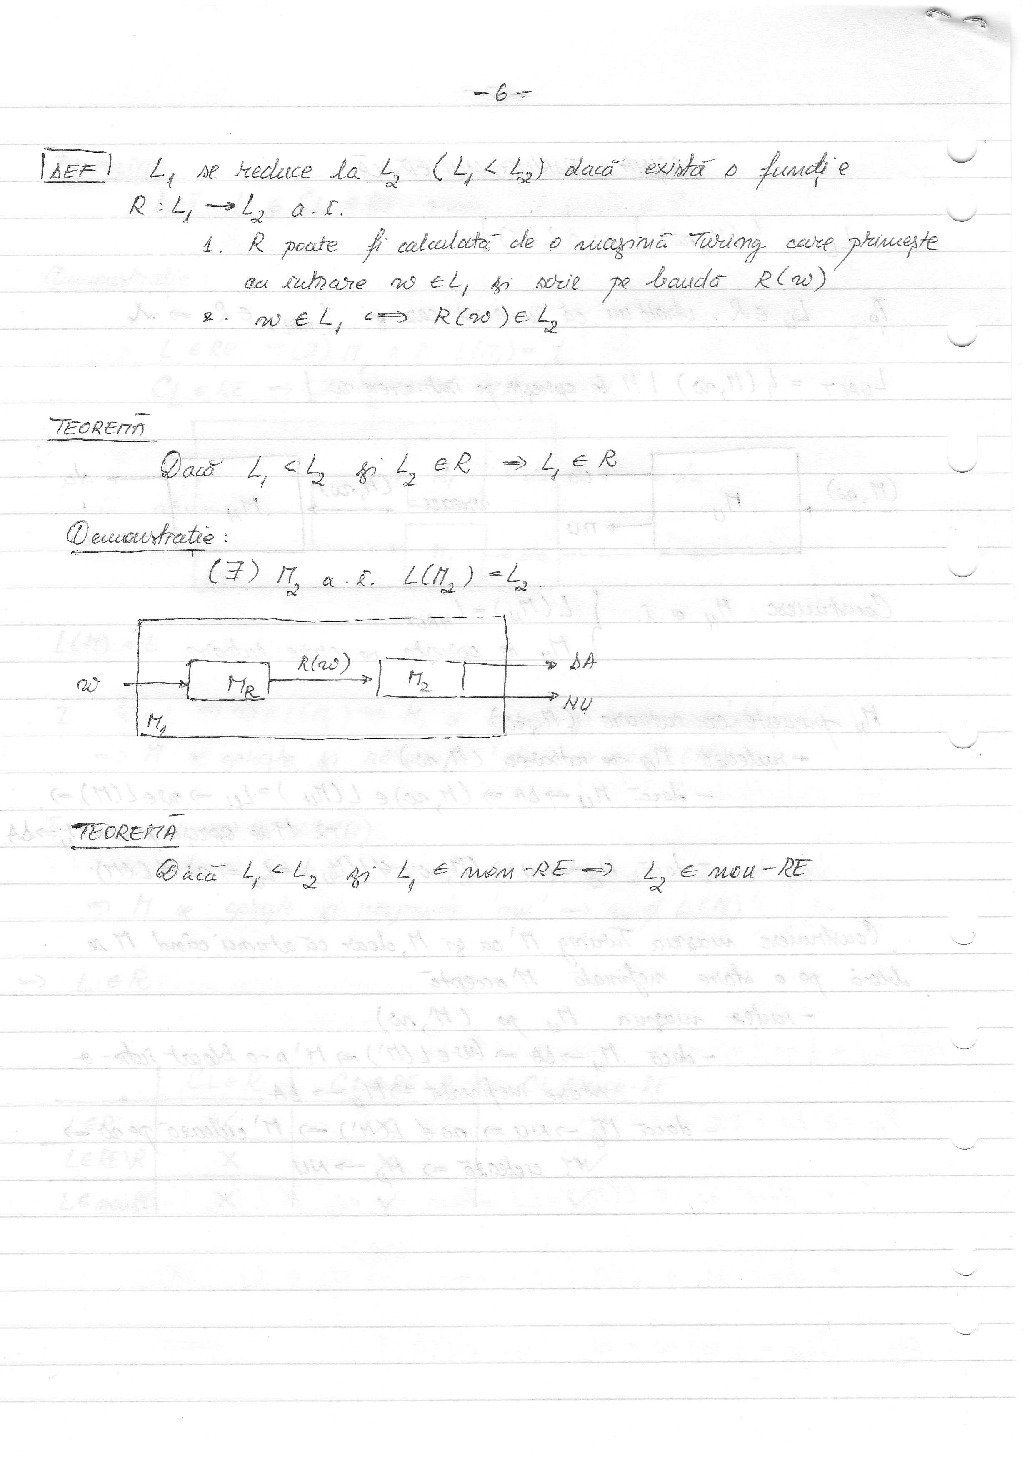 - 6 -
DEF L₁ se reduce la L₂ (L₁ < L₂) dacă există o funcție
R : L₁ → L₂ a.î.
1. R poate fi calculată de o mașină Turing care primește
ca intrare w ∈ L₁ și scrie pe bandă R(w)
2. w ∈ L₁ <=> R(w) ∈ L₂
TEOREMĂ
Dacă L₁ < L₂ și L₂ ∈ R => L₁ ∈ R
Demonstrație :
(∃) M₂ a.î. L(M₂) = L₂
w M_R R(w) M₂ DA
NU
M₁
TEOREMĂ
Dacă L₁ < L₂ și L₁ ∈ non-RE => L₂ ∈ non-RE